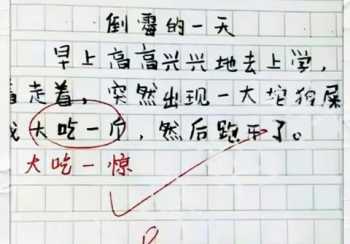 倒霉的一天
早上高高兴兴地去上学,
着走着,突然出现一大坨狗屎
我大吃一斤,然后跑了。
大吃一惊